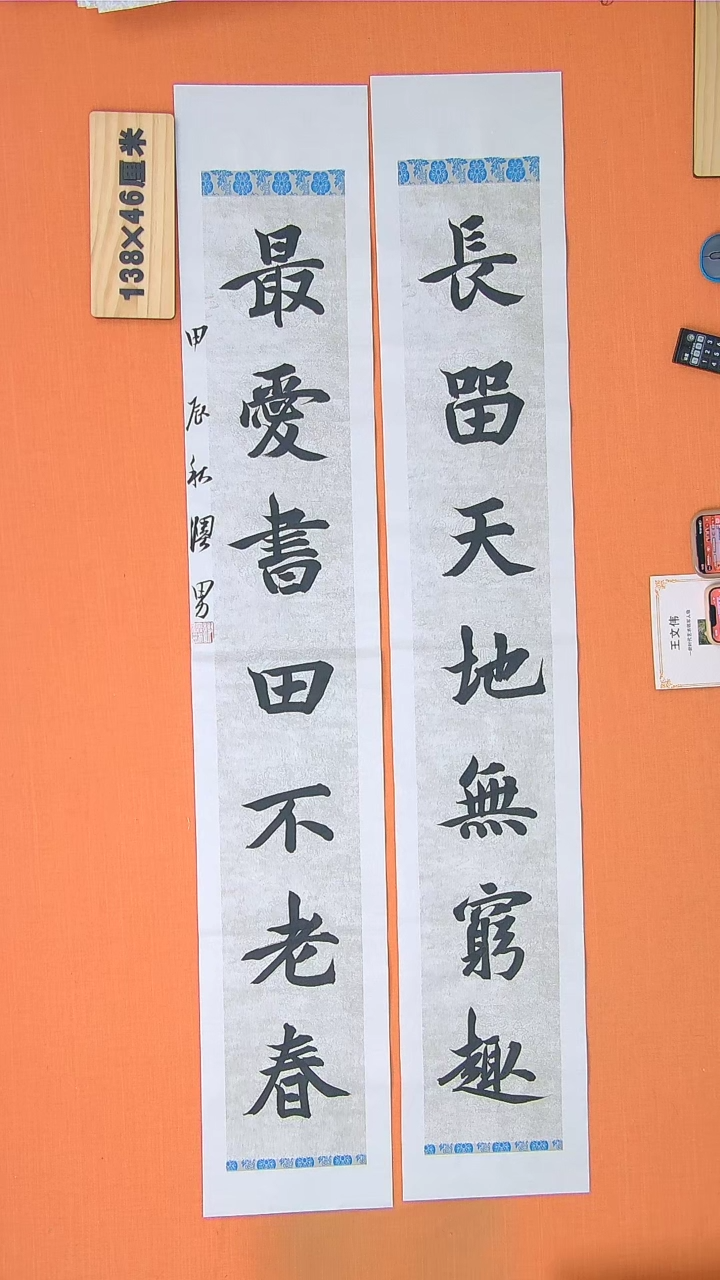 長畱天地無窮趣
最愛書田不老春
甲辰秋潤男
138×46厘米
王文伟